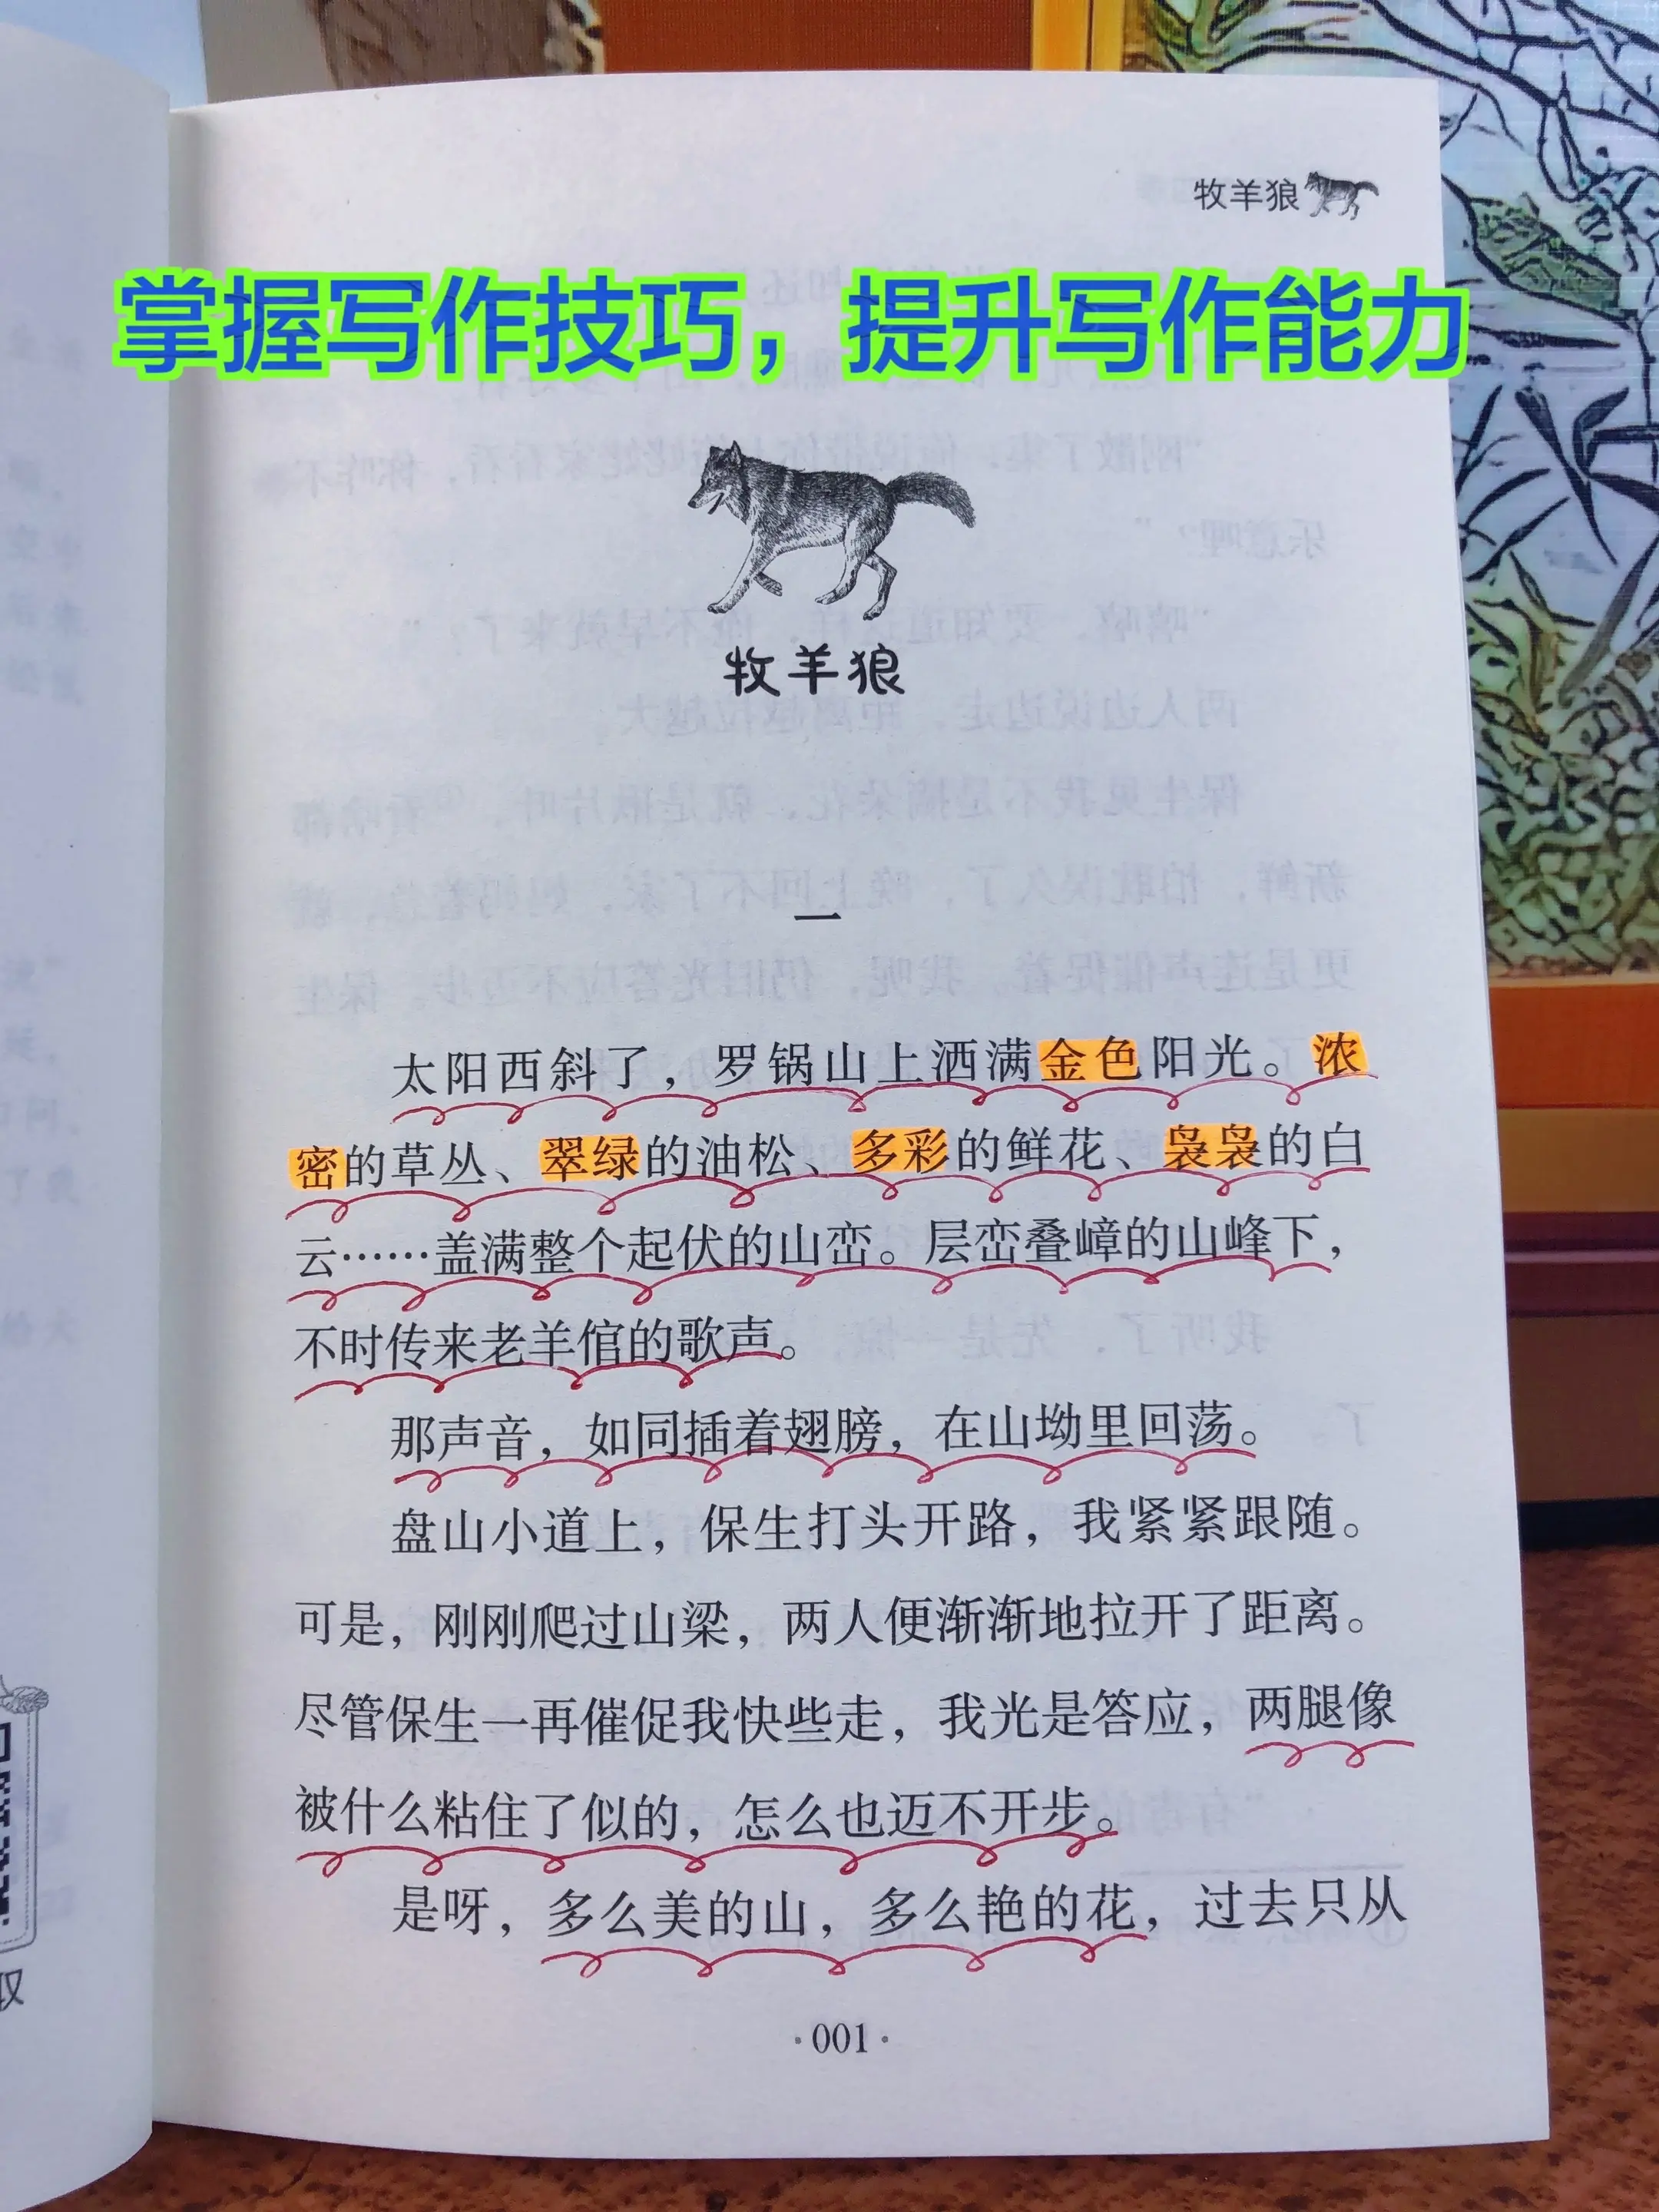 牧羊狼
掌握写作技巧，提升写作能力
牧羊狼
一
太阳西斜了，罗锅山上洒满金色阳光。浓
密的草丛、翠绿的油松、多彩的鲜花、袅袅的白
云……盖满整个起伏的山峦。层峦叠嶂的山峰下，
不时传来老羊倌的歌声。
那声音，如同插着翅膀，在山坳里回荡。
盘山小道上，保生打头开路，我紧紧跟随。
可是，刚刚爬过山梁，两人便渐渐地拉开了距离。
尽管保生一再催促我快些走，我光是答应，两腿像
被什么粘住了似的，怎么也迈不开步。
是呀，多么美的山，多么艳的花，过去只从
·001·